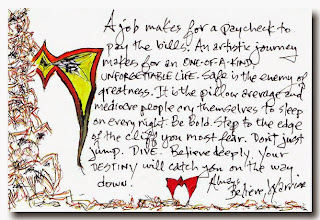 A job makes for a paycheck to
pay the bills. An artistic journey
makes for an ONE-OF-A-KIND,
UNFORGETTABLE LIFE. Safe is the enemy of
greatness. It is the pillow average and
mediocre people cry themselves to sleep
on every night. Be Bold. Step to the edge
of the cliff you most fear. Don't just
jump. DIVE. Believe deeply. Your
DESTINY will catch you on the way
down. Always
Believe, Warrior